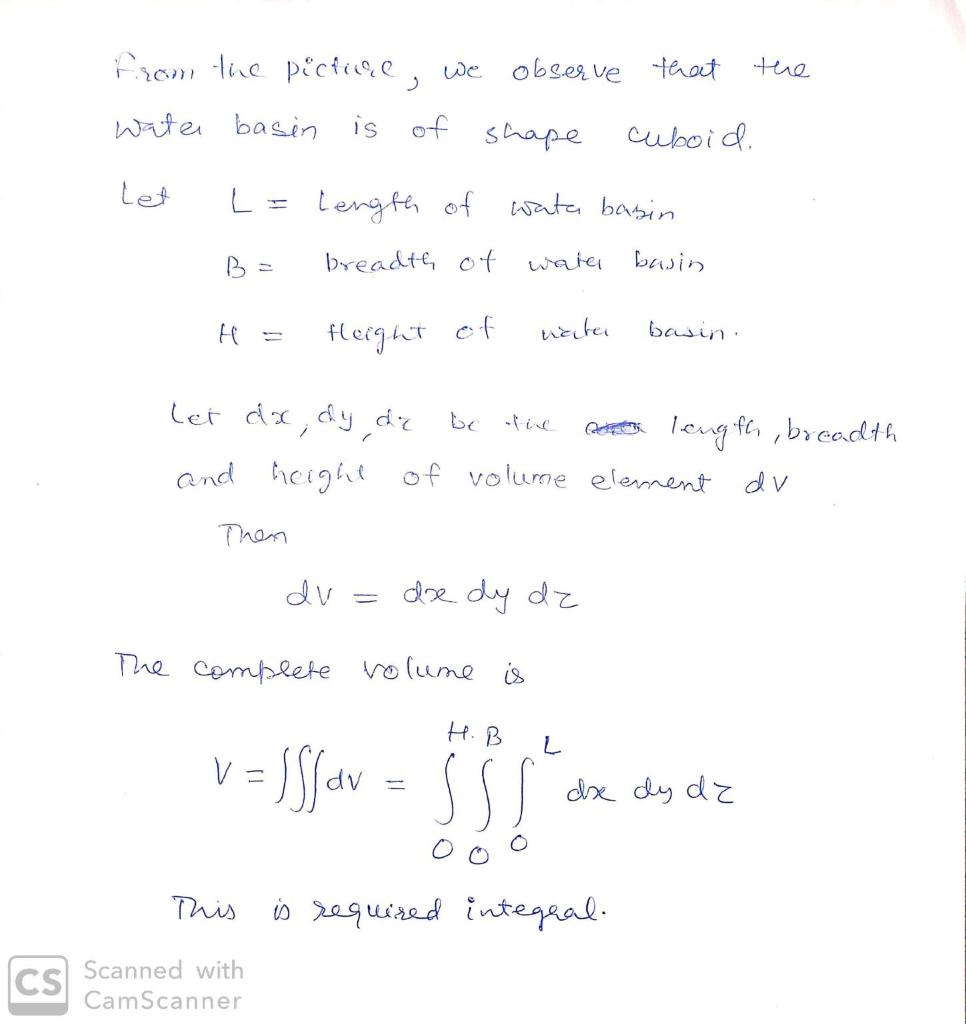 From the picture, we observe that the
water basin is of shape cuboid.
Let L = length of water basin
B = breadth of water basin
H = Height of water basin.
Let dx, dy, dz be the length, breadth
and height of volume element dv
Then
dv = dx dy dz
The complete volume is
V = ∫∫∫dv = ∫₀ᴴ ∫₀ᴮ ∫₀ᴸ dx dy dz
This is required integral.
CS Scanned with
CamScanner